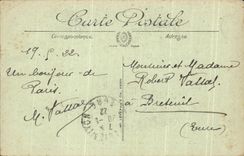 Carte Postale
Correspondance
Adresse
19.5.22
Un bonjour de
Paris.
M. Vallat
Monsieur et Madame
Robert Vallat
à Breteuil
(Eure)